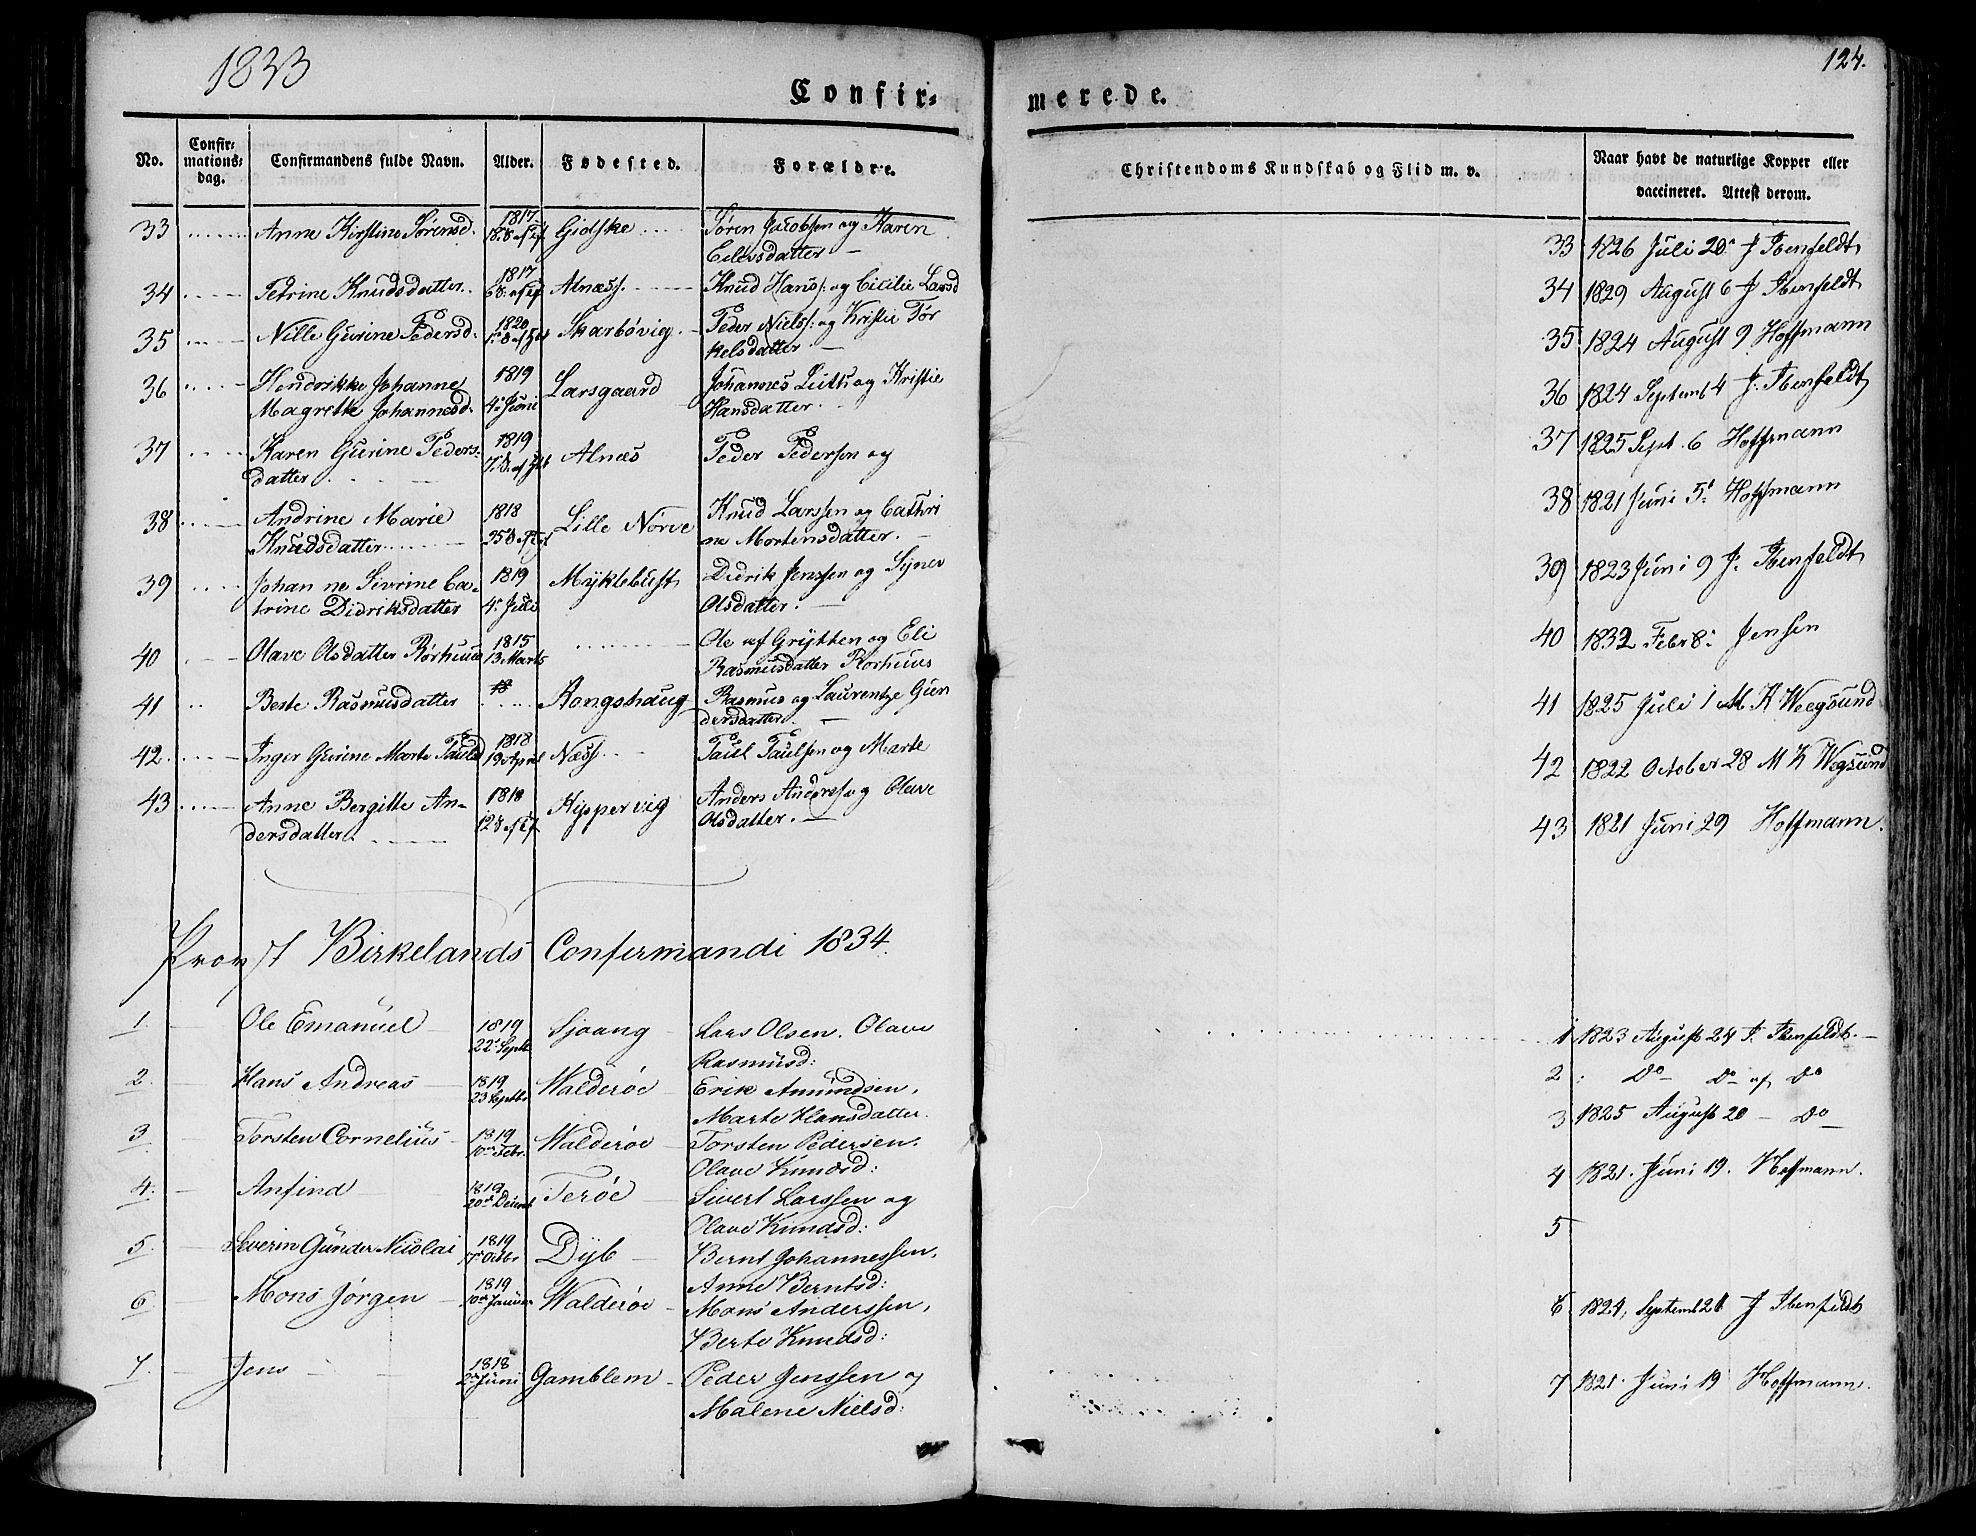 1833
124.
Confir-
merede.
No.
Confir-
mations-
dag.
Confirmandens fulde Navn.
Alder.
Fødested.
Forældre.
Christendoms Kundskab og Flid m. v.
Naar havt de naturlige Kopper eller
vaccineret. Attest derom.
33 Anne Kirstine Sørensd. 1817 Giøske Søren Jacobsen og Karen
Eilersdatter —
33 1826 Juli 20. J Ibenfeldt
34 Petrine Knudsdatter 1817 Alnæss. Knud Hans: og Cicilie Larsd
34 1829 August 6 J Ibenfeldt
35 Nille Gurine Pedersd. 1820 Skarbøvig. Peder Niels: og Kristie Tør
kelsdatter —
35 1824 August 9 Hoffmann
36 Hendrikke Johanne 1819 Larsgaard Johannes og Kristie
Magrethe Johannesd. 4. Juni Hansdatter.
36 1824 Septemb 4 J. Ibenfeldt
37 Karen Gurine Peders- 1819 Alnæs Peder Pedersen og
datter
37 1825 Sept. 6 Hoffmann
38 Andrine Marie 1818 Lille Nørve Knud Larssen og Cathri
Knudsdatter ne Mortensdatter.
38 1821 Juni 5. Hoffmann
39 Johan ne Sivrine Ca- 1819 Myklebust Didrik Jenssen og
trine Didriksdatter 4. Juli Olsdatter.
39 1823 Juni 9 J. Ibenfeldt
40 Olave Olsdatter Rørhuus 1815 Ole af Grytten og Eli
13 Marts Rasmusdatter Rørhuus
40 1832 Febr 8. Jensen
41 Berte Rasmusdatter Rongshaug Rasmus og Laurentze Gun
dersdatter. —
41 1825 Juli 1 M K Weegsund
42 Inger Gurine Marte Pauls 1818 Næss Paul Paulsen og Marte
19 April
42 1822 October 28 M K Wegsund
43 Anne Bergitte An- 1818 Kippervig Anders Anders og Olave
dersdatter. Olsdatter. —
43 1821 Juni 29 Hoffmann.
Provst Birkelands Confirmandi 1834.
1. Ole Emanuel 1819 Sjaang Lars Olsen. Olave
22 Septb Rasmusd:
1 1823 August 24 J. Ibenfeldt. —
2. Hans Andreas 1819 Walderøe Erik Amundsen,
23 Septbr Marte Hansdatter.
2 : Do — Do af Do
3. Torsten Cornelius 1819 Walderøe Torsten Pedersen.
10 Febr. Olave Knudsd:
3 1825 August 20 — Do —
4. Anfind 1819 Terøe Sivert Larssen og
20 Decemb Olave Knudsd:
4 1821. Juni 19. Hoffmann.
5. Severin Gunder Nicolai 1819 Dyb Bernt Johannessen,
Octbr Anne Berntsd:
5
6 Mons Jørgen 1819 Walderøe Mons Anderssen,
10 Januar Berte Knudsd:
6 1824, Septemb 21 J Ibenfeldt
7. Jens 1818 Gamblem Peder Jenssen og
2 Juni Malene Nielsd:
7 1821. Juni 19 Hoffmann.